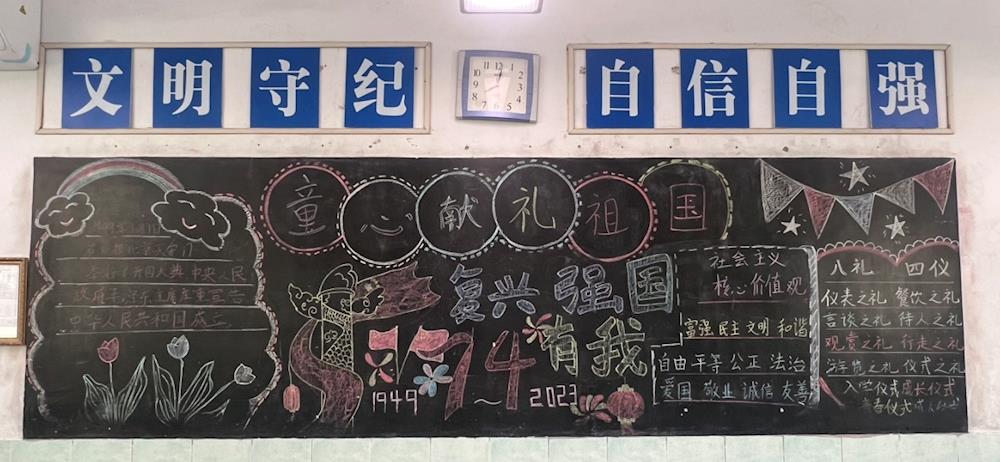 文明守纪
自信自强
12 1 2 3 4 5 6 7 8 9 10 11
童心献礼祖国
举行了开国大典 中央人民
政府毛泽东主席庄重宣告
中华人民共和国成立
复兴强国
有我
74
1949～2023
社会主义
核心价值观
富强 民主 文明 和谐
自由 平等 公正 法治
爱国 敬业 诚信 友善
八礼 四仪
仪表之礼 餐饮之礼
言谈之礼 待人之礼
观赏之礼 行走之礼
游览之礼 仪式之礼
入学仪式 成长仪式
青春仪式